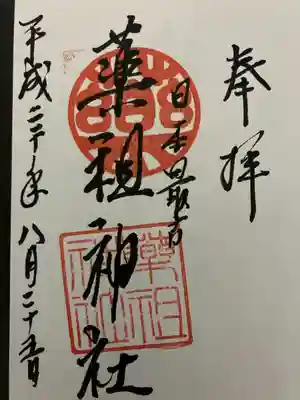 奉拝
日本最古
薬祖神社
平成二十年八月二十五日
薬祖
神社